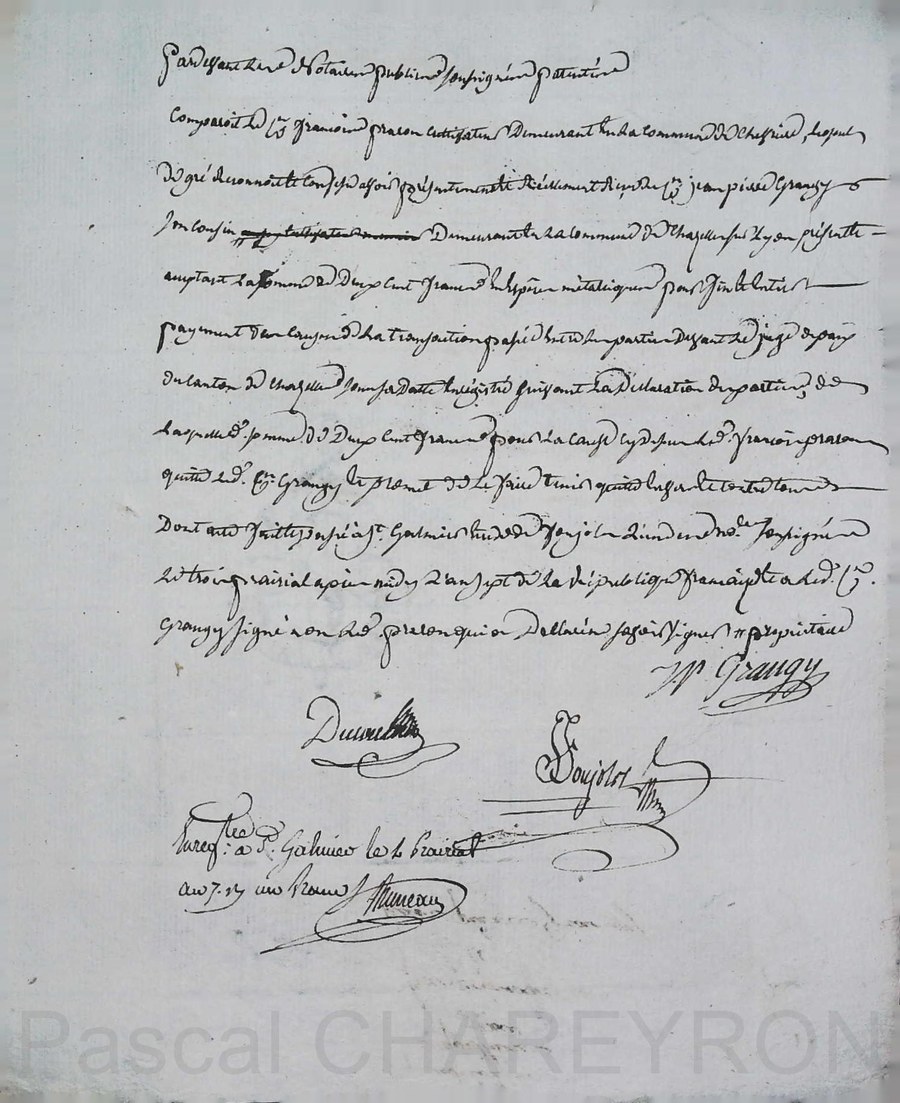 Pardevant les Notaires publics soussignés patentés
Comparoit le Cn françois prazon cultivateur Demeurant en la commune de Chevrieres, lequel
de gré reconnoit et confesse avoir présentement et réellement reçu du Cn jean pierre Grangy
son cousin Demeurant en la commune de Chazelles sur Lyon présent et
acceptant la somme de Deux cent francs en espèces métalliques pour fin et entier
payement du en la transaction passée entre les parties Devant le juge de paix
du canton de Chazelles sous sa datte enregistré suivant la Déclaration des parties, de
laquelle de. somme de Deux cent francs pour la cause cy dessus led. françois prazon
quitte led. Cn Grangy et promet de le faire tenir quitte envers et contre tous
Dont acte fait et passé à St. Galmier étude de Ponjolz l'un des no.res soussignés
Le trois prairial après midy l'an sept de la république française et a led. Cn.
Grangy signé non led. prazon qui a Déclaré ne savoir signer # propriétaire
J.P Grangy
Ponjolz
Enregtré. à St. Galmier le 4 Prairial
an 7. un franc